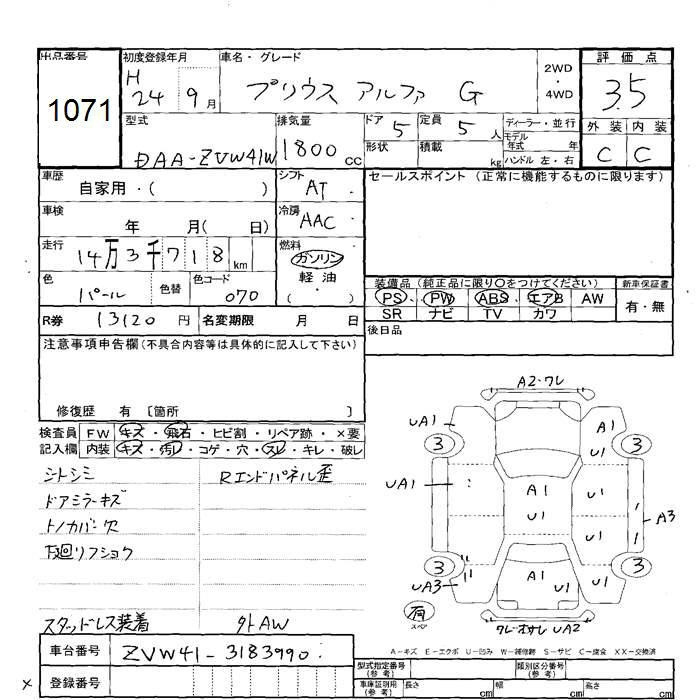 出品番号
1071
初度登録年月
H 24 9月
車名・グレード
プリウス アルファ G
2WD
・
4WD
評価点
3.5
型式
DAA-ZVW41W
排気量
1800cc
ドア 5
定員 5人
形状
積載 kg
ディーラー・並行
モデル年式 年
ハンドル 左・右
外装 内装
C C
車歴
自家用・( )
シフト
AT
セールスポイント (正常に機能するものに限ります)
車検
年 月( 日)
冷房
AAC
走行
14万3千718km
燃料
ガソリン
軽油
( )
色
パール
色替
色コード
070
装備品(純正品に限り〇をつけてください)
新車保証書
PS・PW ABS・エアB AW
SR ナビ TV カワ
有・無
R券 13120円
名変期限 月 日
後日品
注意事項申告欄(不具合内容等は具体的に記入して下さい)
修復歴 有 〔箇所 〕
検査員
記入欄
FW キズ・飛石・ヒビ割・リペア跡・×要
内装 キズ・汚レ・コゲ・穴・スレ・キレ・破レ
シートシミ
Rエンドパネル歪
ドアミラーキズ
トノカバー欠
下廻リフショウ
スタッドレス装着
外AW
A2・ワレ
UA1
A1
3
3
UA1
A1
U1
U1
U1
A3
3
3
UA3
A1
U1
U1
有
スペア
ワレ・オサレ UA2
A-キズ E-エクボ U-凹み W-補修跡 S-サビ C-腐食 XX-交換済
車台番号
ZVW41-3183990
登録番号
型式指定番号
(参考)
類別区分番号
(参考)
車庫証明用
(参考)
長さ cm
幅 cm
高さ cm